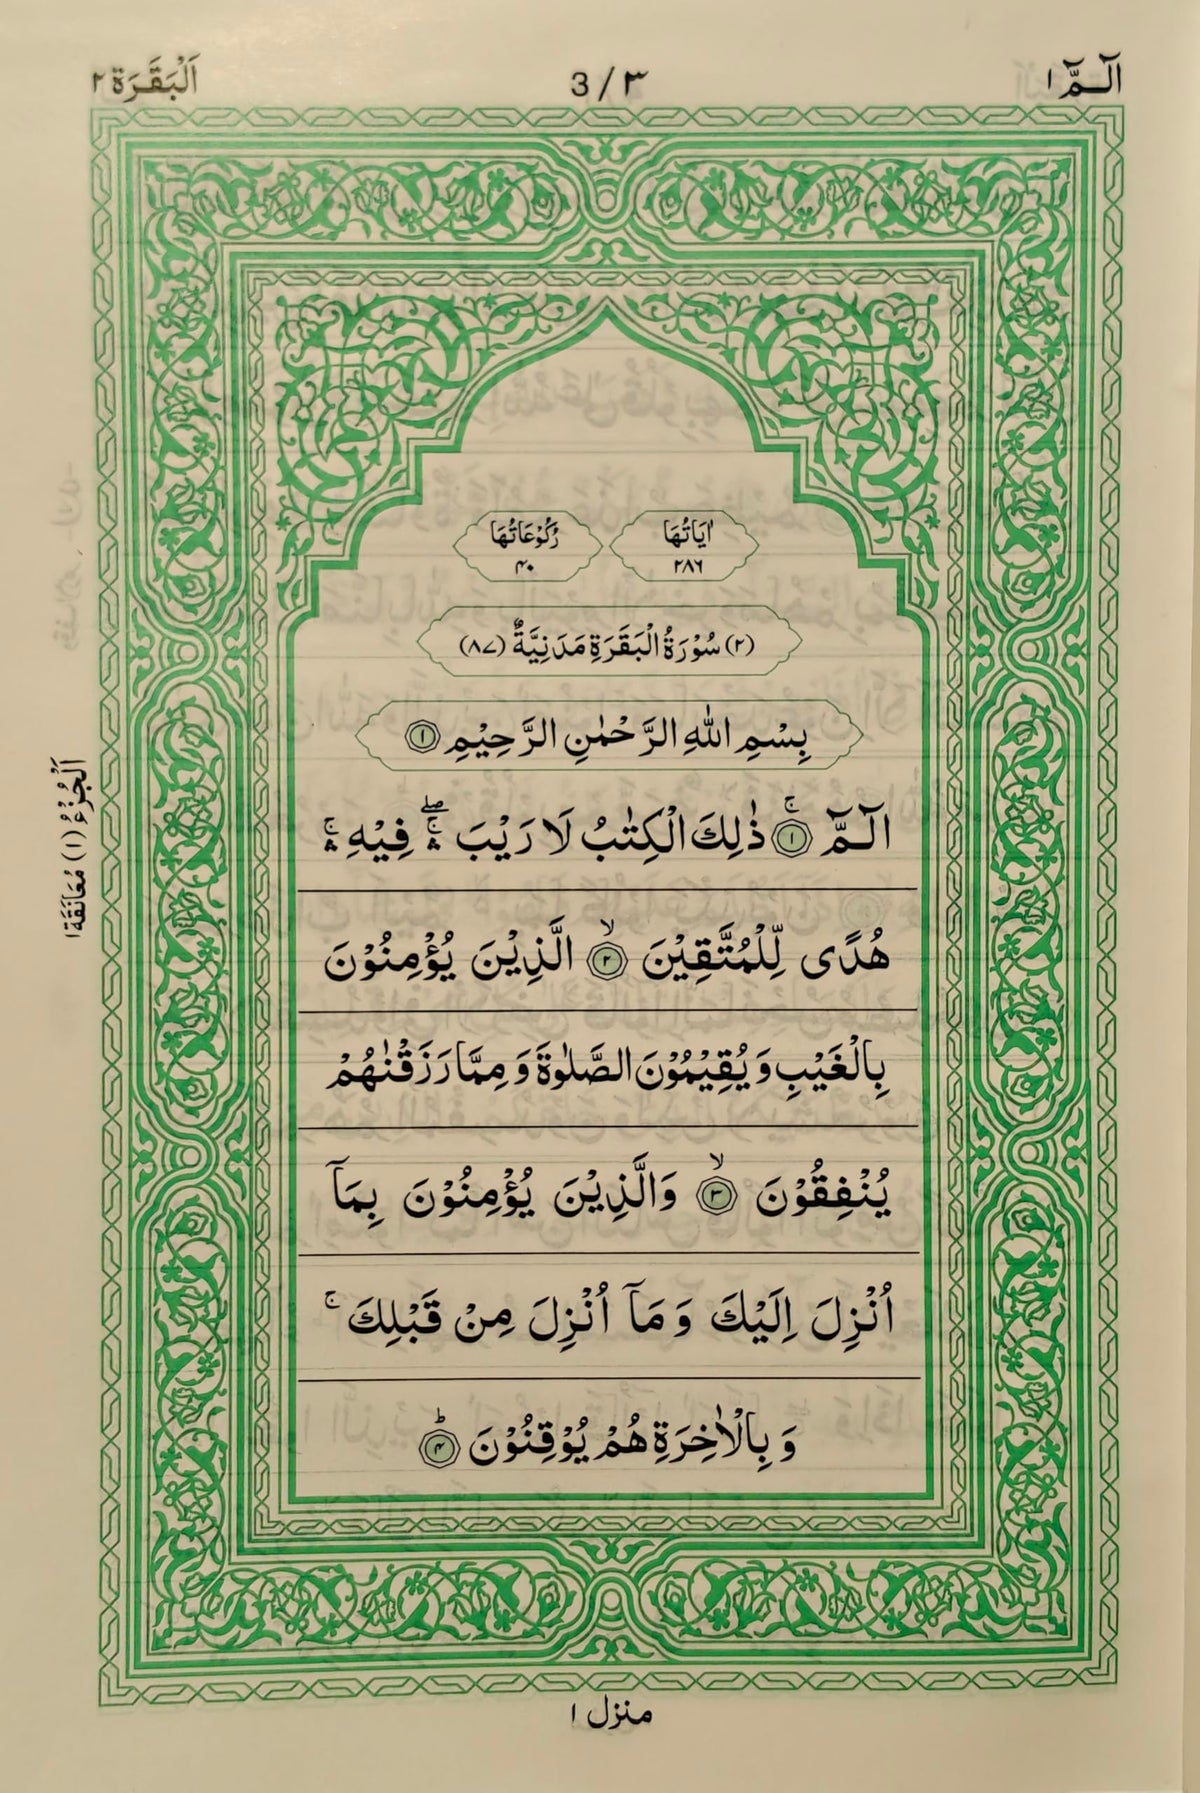 الٓـمّٓ ١
3/٣
اَلْبَقَرَة ٢
اٰيَاتُهَا
٢٨٦
رُكُوْعَاتُهَا
٤٠
(٢) سُوْرَةُ الْبَقَرَةِ مَدَنِيَّةٌ (٨٧)
بِسْمِ اللّٰهِ الرَّحْمٰنِ الرَّحِيْمِ ١
الٓـمّٓ ۚ ١ ذٰلِكَ الْكِتٰبُ لَا رَيْبَ ۖۛۚ فِيْهِ ۛۚ
هُدًى لِّلْمُتَّقِيْنَ ۙ ٢ الَّذِيْنَ يُؤْمِنُوْنَ
بِالْغَيْبِ وَيُقِيْمُوْنَ الصَّلٰوةَ وَمِمَّا رَزَقْنٰهُمْ
يُنْفِقُوْنَ ۙ ٣ وَالَّذِيْنَ يُؤْمِنُوْنَ بِمَآ
اُنْزِلَ اِلَيْكَ وَمَآ اُنْزِلَ مِنْ قَبْلِكَ ۚ
وَبِالْاٰخِرَةِ هُمْ يُوْقِنُوْنَ ؕ ٤
اَلْجُزْءُ (١) مُعَانَقَة ١
منزل ١